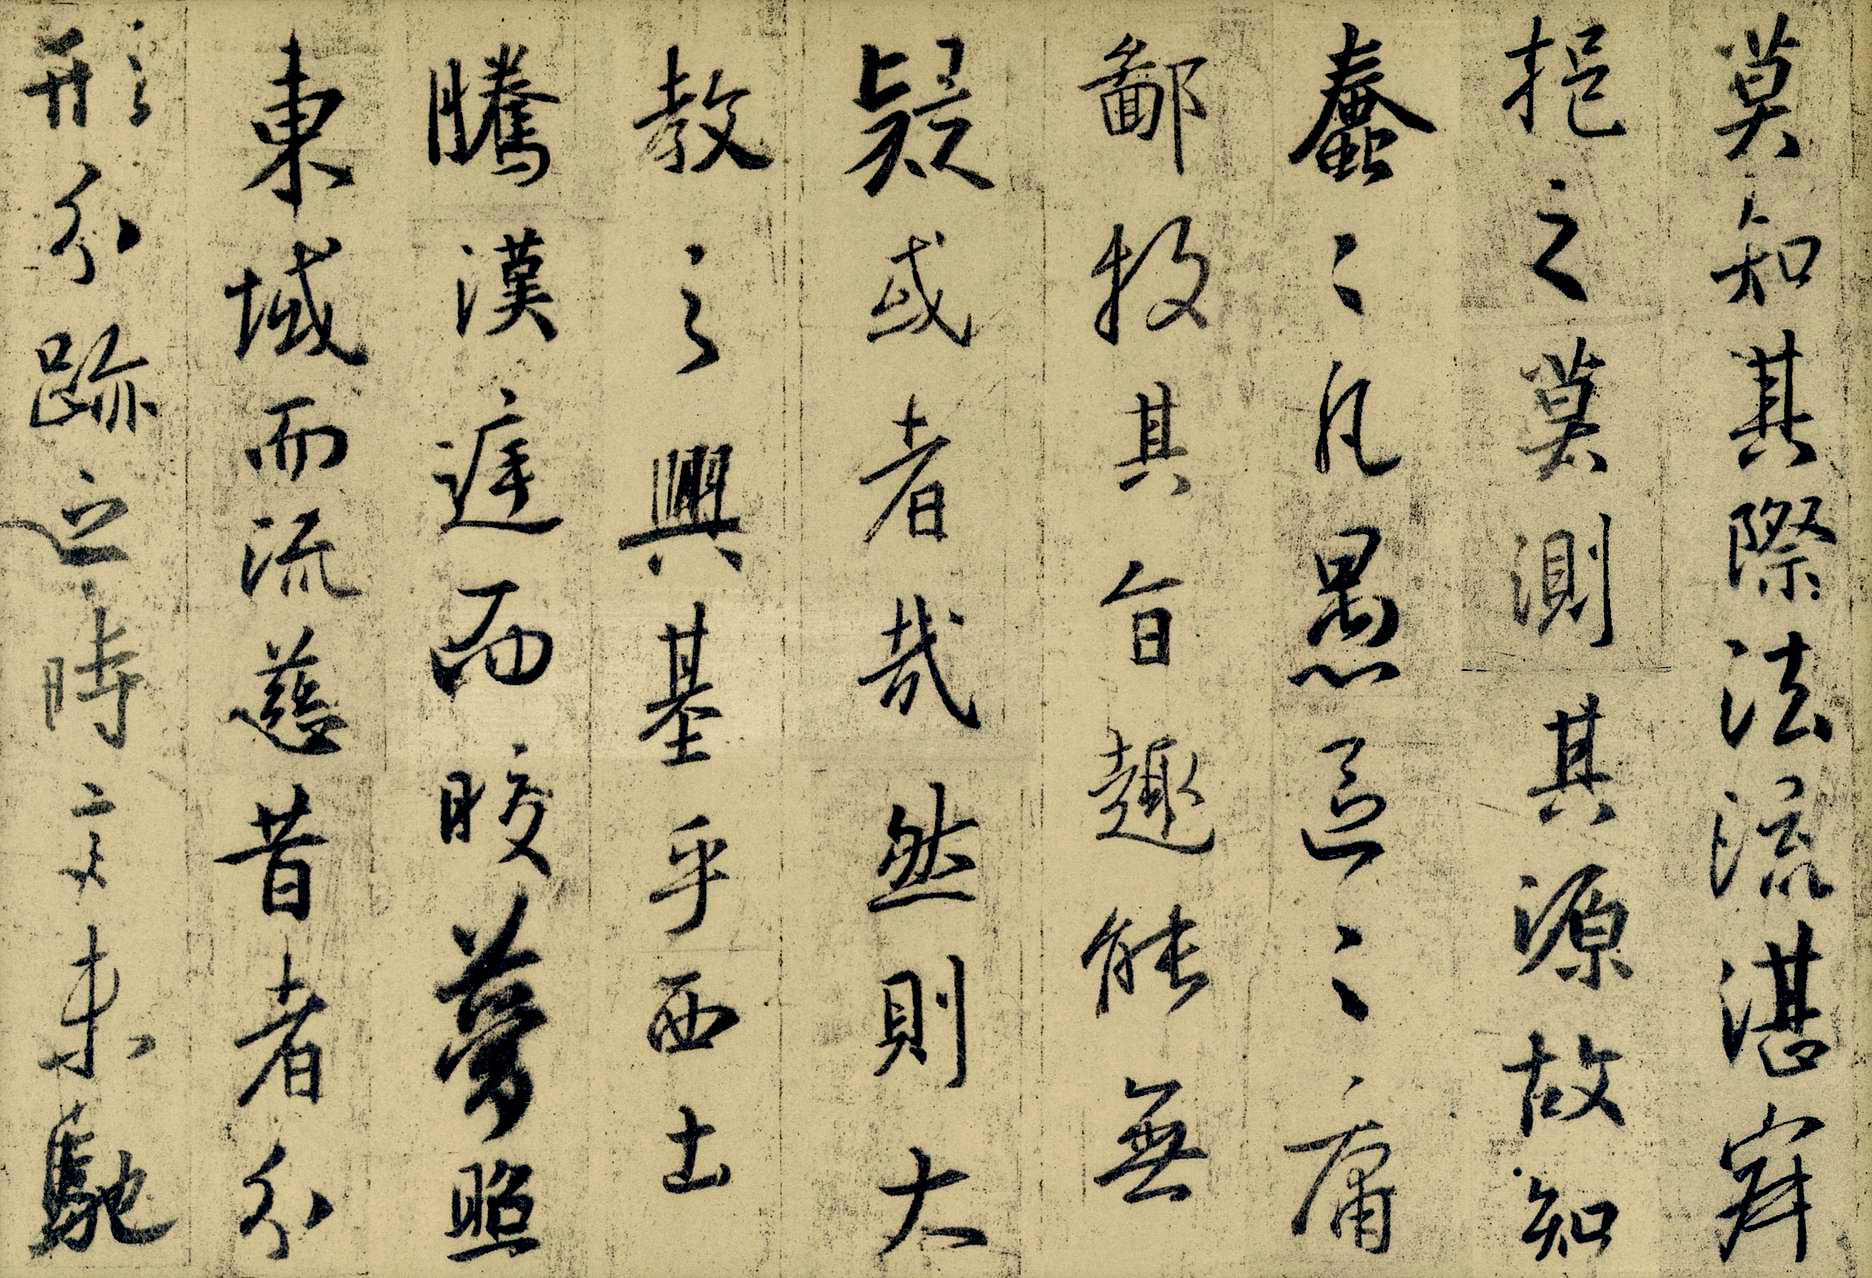 莫知其際法流湛寂
挹之莫測其源故知
蠢〻凡愚區〻庸
鄙投其旨趣能無
疑或者哉然則大
教之興基乎西土
騰漢庭而晈夢照
東域而流慈昔者分
形分跡之時言未馳